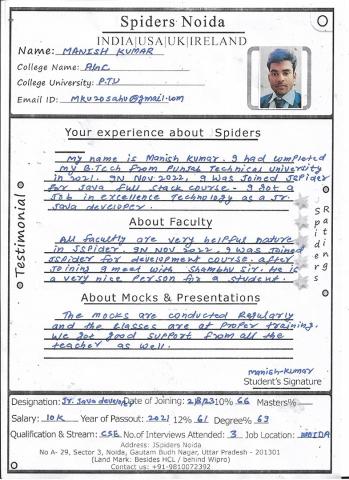 Spiders Noida
INDIA|USA|UK|IRELAND
Name: MANISH KUMAR
College Name: ABC
College University: PTU
Email ID: mku20sahu@gmail.com
Your experience about Spiders
My name is Manish Kumar. I had completed
my B.Tech from Punjab Technical University
in 2021. IN Nov 2022, I was Joined JSpider
for Java full stack course. I got a
Job in excellence Technology as a Jr.
Java developer.
About Faculty
All faculty are very helpful nature
in JSpider. IN Nov 2022, I was Joined
JSpider for development course. after
Joining I meet with Shambhu Sir. He is
a very nice Person for a student.
About Mocks & Presentations
The mocks are conducted Regularly
and the classes are at Proper training.
We got good support from all the
teacher as well.
Testimonial
Spiders
Ratings
Manish-Kumar
Student's Signature
Designation: Jr. Java developer Date of Joining: 2/8/23 10% 66 Masters%
Salary: 10K Year of Passout: 2021 12% 61 Degree% 63
Qualification & Stream: CSE No.of Interviews Attended: 3 Job Location: NOIDA
Address: JSpiders Noida
No A- 29, Sector 3, Noida, Gautam Budh Nagar, Uttar Pradesh - 201301
(Land Mark: Besides HCL / behind Wipro)
Contact us: +91-9810072392